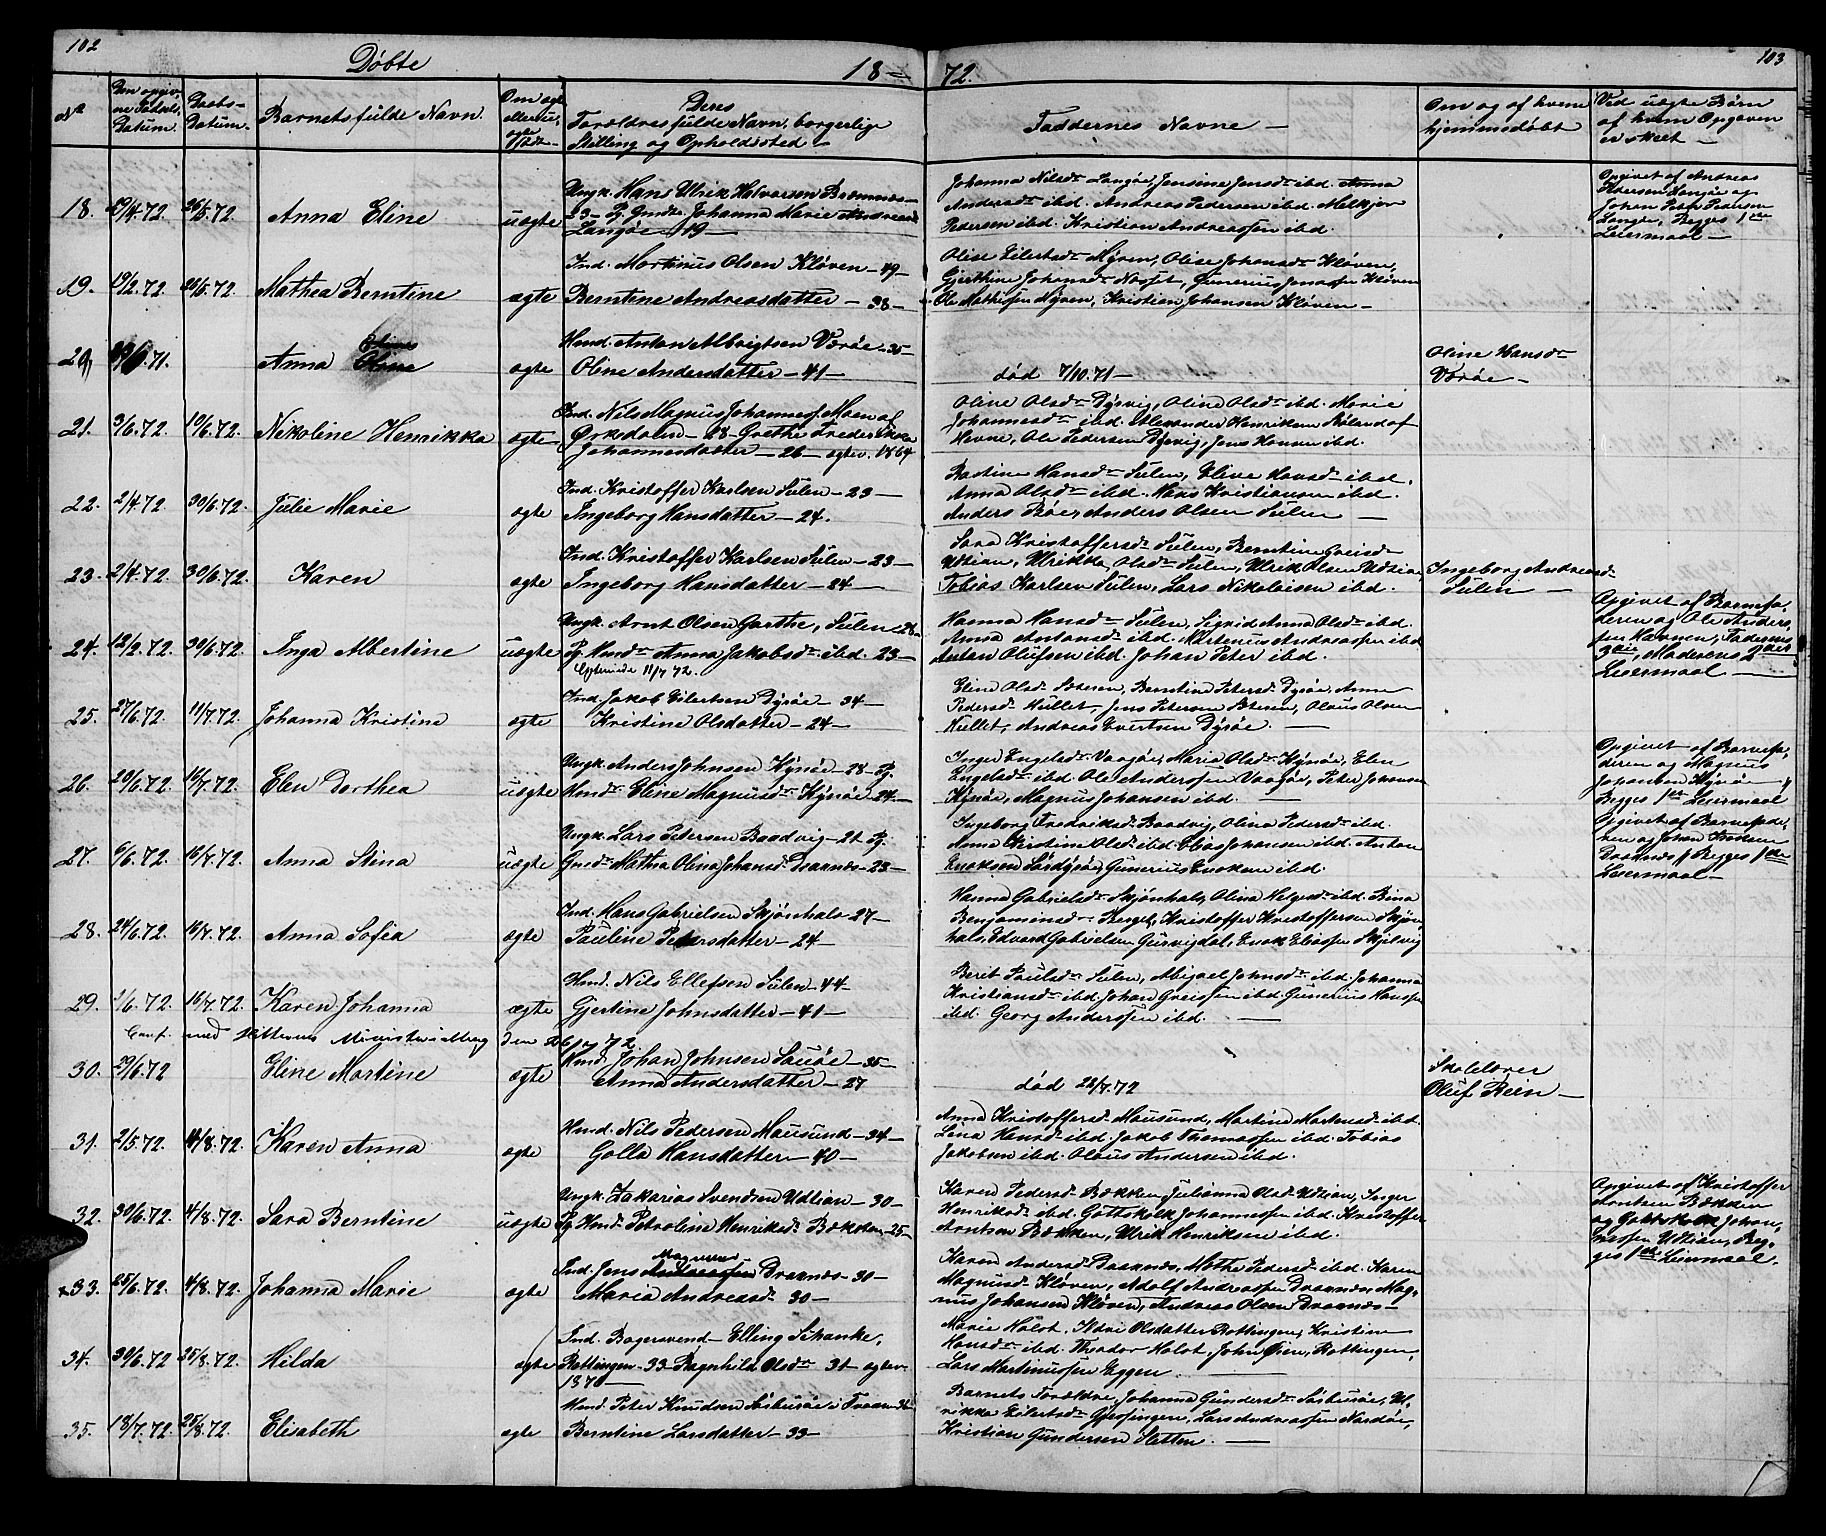 102
Døbte
18-
72.
103
No
Den opgiv-
ne Fødsels
Datum.
Daabs-
Datum.
Barnets fulde Navn.
Om ægte
eller u-
ægte
Født
Deres
Forældres fulde Navn, borgerlige
Stilling og Opholdssted
Faddernes Navne
Om og af hvem
hjemmedøbt
Ved uægte Børn
af hvem Opgaven
er skeet
18. 19/4.72. 26/5.72. Anna Eline uægte
Ungk. Hans Ulrik Halvorsen
23 - Pg. Johanna Marie
Langøe 19
Johanna Nilsdr Langøe, Jensine Jensdr ibd. Anna
Andreasdr ibd. Andreas Pedersen ibd. Melkjor
Pedersen ibd. Kristian Andreassen ibd.
Opgivet af Andreas
Pedersen Langøe og
Johan Peter Pedersen
Langøe, Begges 1ste
Leiermaal
19. 19/2.72. 26/5.72. Mathea Berntine ægte
Ind. Martinus Olsen Kløven - 49
Berntine Andreasdatter - 38
Olise Eilertsdr Myren, Olise Johansdr Kløven,
Ole Mathisen Myren, Kristian Johansen Kløven
20. .71. Anna Oline ægte
Hmd. Anton Albrigtsen Værøe - 35
Oline Andersdatter - 41
død 7/10.71
Oline Hansdr
Værøe
21. 3/6.72. 19/6.72. Nikoline Henrikka ægte
Ind. Nils Magnus Johannes. Moen af
Ørkedalen - 28 - Grethe Frederikka
Johannesdatter - 26 - ægtev. 1864
Oline Olsdr Dyrvig, Oline Olsdr ibd. Marie
Johannesdr ibd. Alexander Henriksen af
Hevne, Ole Pedersen Dyrvig, Jens Hansen ibd.
22. 2/4.72 30/6.72. Julie Marie ægte
Ind. Kristoffer Karlsen Sulen - 23
Ingeborg Hansdatter - 24.
Bastine Hansdr Sulen, Eline Hansdr ibd.
Anna Olsdr ibd. Hans Kristiansen ibd.
Anders Bøe, Anders Olsen Sulen
23. 2/4.72. 30/6.72. Karen ægte
Ind. Kristoffer Karlsen Sulen - 23
Ingeborg Hansdatter - 24
Sara Kristoffersdr Sulen, Berntine Greisdr
Udtian, Ulrikka Olsdr Sulen, Ulrik Olsen Udtian
Tobias Karlsen Sulen, Lars Nikolaisen ibd.
Ingeborg Andreasdr
Sulen
24. 12/2.72. 30/6.72. Inga Albertine uægte
Ungk. Arnt Olsen Garthe, Sulen
Pg. Hmdr Anna Jakobsdr ibd. 23
11/7 72.
Hanna Hansdr Sulen, Sigrid Anna Olsdr ibd.
Anna Antonsdr ibd. Martenus Andreassen ibd
Antan Olufsen ibd. Johan Peter ibd.
Opgivet af Barnefa-
deren og Ole Anders-
sen Havnen, Faderens
3die, Moderens 2det
Leiermaal
25. 27/6.72. 11/7.72. Johanna Kristine ægte
Ind. Jakob Eilertsen Dyrøe - 34
Kristine Olsdatter - 24
Eline Olsdr Sætersen, Berntine Petersdr Dyrøe, Anna
Pedersdr Hullet, Jens Petersen, Olaus Olsen
Hullet, Andreas Evertsen Dyrøe.
26. 20/6.72. 16/7.72. Elen Dorthea uægte
Ungk. Anders Johnsen Kynøe - 28 - Pg.
Hmdr Eline Magnusdr Kynøe 24
Inger Engelsdr Vaagøe, Maria Olsdr Kynøe, Elen
Engelsdr ibd. Ole Anderssen Vaagøe, Peter Johansen
Kynøe, Magnus Johansen ibd.
Opgivet af Barnefa-
deren og Magnus
Johansen Kynøe
Begges 1ste Leiermaal
27. 6/6.72. 16/7.72. Anna Stina uægte
Ungk. Lars Petersen Baadvig - 21 - Pg.
Gmdr Mathea Olina Johansdr Draanes - 23
Ingeborg Fredriksdr Baadvig, Olina Pedersdr ibd.
Anna Kirstine Olsdr ibd. Elias Johansen ibd. Anton
Enoksen Sørdyrøe, Gunerius Enoksen ibd.
Opgivet af Barnefade-
ren og Johan
Draanes / Begges 1ste
Leiermaal
28. 24/6.72. 16/7.72. Anna Sofia ægte
Ind. Hans Gabrielsen Skjønhals - 27
Pauline Petersdatter - 24
Hanna Gabrielsdr Skjønhals, Olina Helgesdr ibd. Bina
Benjaminsdr Berget, Kristoffer Kristoffersen Skjøn-
hals, Edvard Gabrielsen Gurvigdal, Enok Eliassen Skjelvig
29. 1/6.72. 16/7.72. Karen Johanna ægte
Hmd. Nils Ellefsen Sulen - 44
Gjertine Johnsdatter - 41
Berit Paulsdr Sulen, Abigael Johnsdr ibd. Johanna
Kristiansdr ibd. Johan Greissen ibd. Gunerius Hanssen
ibd. Georg Anderssen ibd.
Conf. med Hitterens Ministerialbog den
30. 29/6.72 Eline Martine ægte
Hmd. Johan Johnsen Sauøe - 35
Anna Andersdatter - 27
død 22/7.72
Skolelærer
Oluf Rein
31. 2/5.72. 4/8.72. Karen Anna ægte
Hmd. Nils Pedersen Mausund - 34
Golla Hansdatter - 40
Anna Kristoffersdr Mausund, Martina Martensdr ibd.
Lina Hansdr ibd. Jakob Thomassen ibd. Tobias
Jakobsen ibd. Olaus Andersen ibd.
32. 30/6.72. 4/8.72. Sara Berntine uægte
Ungk. Zakarias Svendsen Udtian - 30
Pg. Hmdr Petroline Henriksdr Bækken - 25
Karen Pedersdr Bækken, Julianna Olsdr Udtian, Inger
Henriksdr ibd. Gotskalk Johannessen ibd. Kristoffer
Arntsen Bækken, Ulrik Henriksen ibd.
Opgivet af Kristoffer
Arntsen Bækken
og Gotskalk Johan-
nessen Udtian, Beg-
ges 1ste Leiermaal.
33. 25/6.72. 4/8.72. Johanna Marie ægte
Ind. Jens Andreassen Magnusen Draanes - 30
Maria Andreasdr 30
Karen Andersdr Draanes, Mathe Pedersdr ibd. Karen
Magnusdr Kløven, Adolf Andreassen Draanes, Mag-
nus Johansen Kløven, Andreas Olsen Draanes
34. 30/6.72 25/8.72. Hilda ægte
Ind. Bagersvend Elling Schanke,
Rottingen - 33 Ragnhild Olsdr 31 - ægtev.
1870
Marie Holst, Olsdatter Rottingen, Kristine
Hansdr ibd. Theodor Holst, John Øien, Rottingen,
Lars Martinussen Eggen.
35. 18/7.72. 25/8.72. Elisabeth ægte
Hmd. Peter Knudsen Sørbusøe i
Berntine Larsdatter - 33
Barnets Forældre, Johanna Gundersdr Sørbusøe, Ul-
rikke Eilertsdr Gjessingen, Lars Andreassen Nordøe,
Kristian Gundersen Sletten.